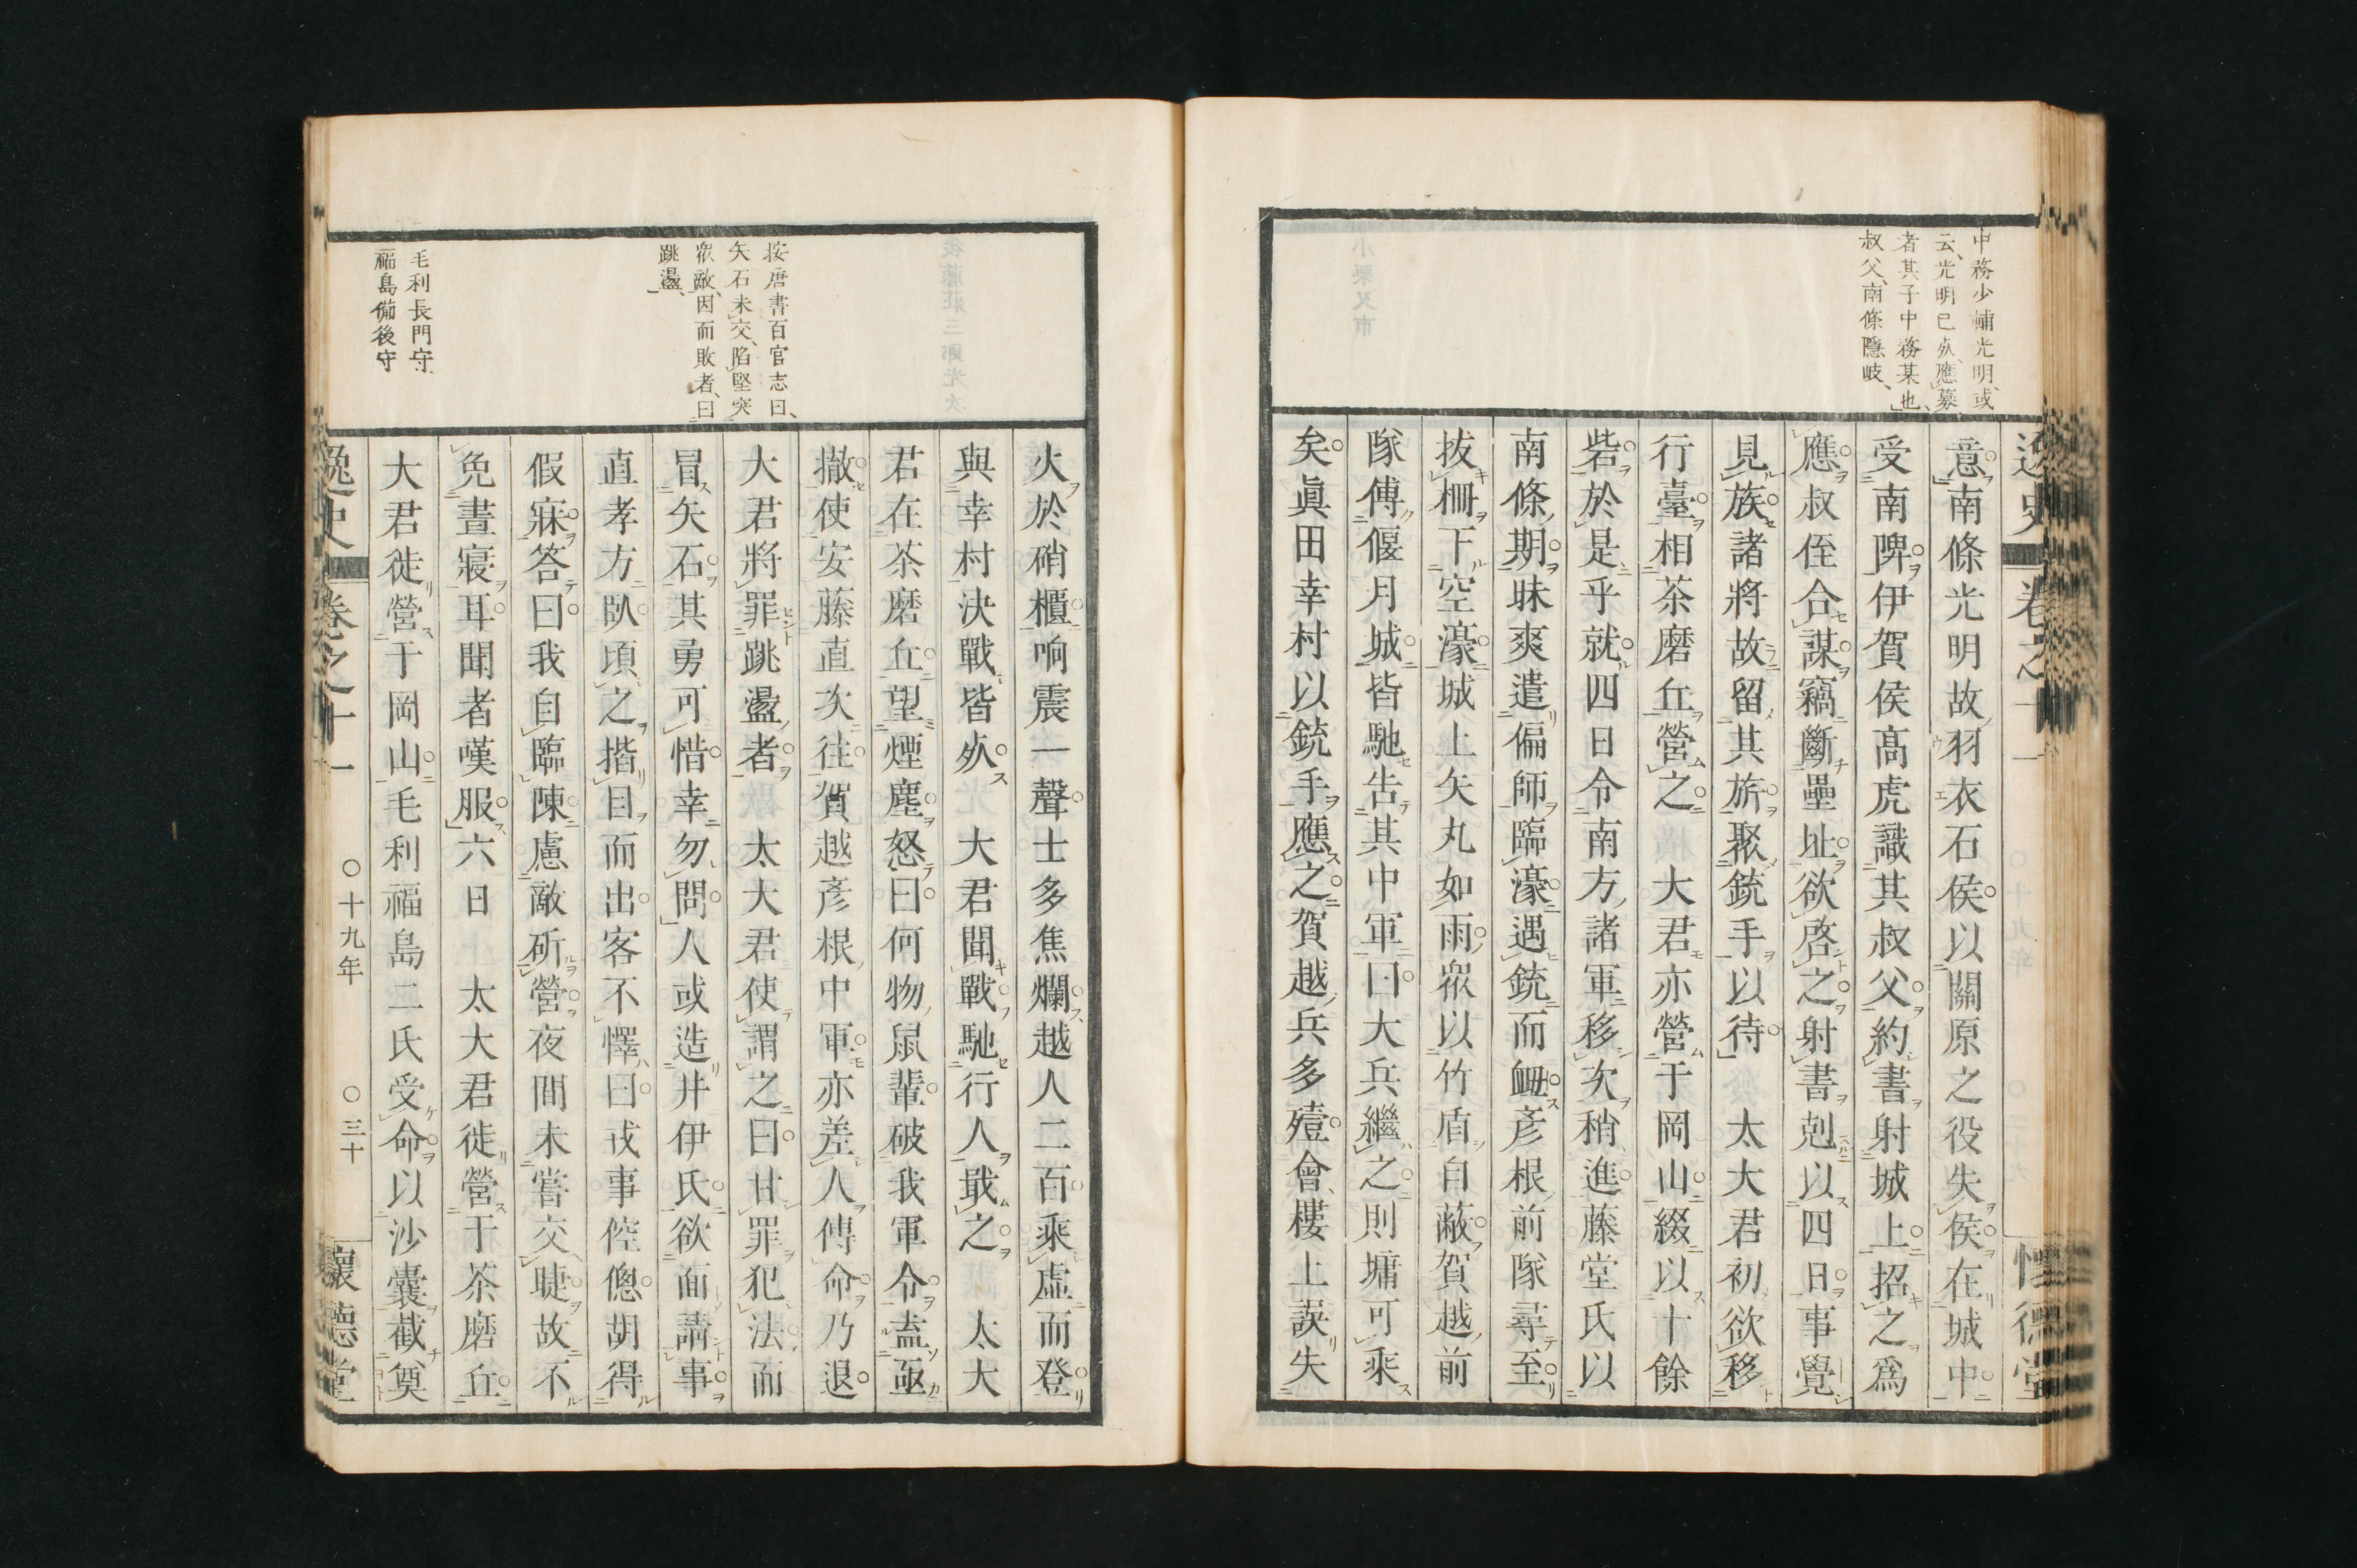 中務少輔光明或
云光明已死應募
者其子中務某也
叔父南條隱岐
意南條光明故羽衣石侯以關原之役失侯在城中
受南陴伊賀侯高虎識其叔父約書射城上招之爲
應叔侄合謀竊斷壘址欲啓之射書剋以四日事覺
見族諸將故留其旂聚銃手以待 太大君初欲移
行臺相茶磨丘營之 大君亦營于岡山綴以十餘
砦於是乎就四日令南方諸軍移次稍進藤堂氏以
南條期昧爽遣偏師臨濠遇銃而衄彥根前隊尋至
拔柵下空濠城上矢丸如雨衆以竹盾自蔽賀越前
隊傅偃月城皆馳告其中軍曰大兵繼之則墉可乘
矣眞田幸村以銃手應之賀越兵多殪會樓上誤失
火於硝櫃响震一聲士多焦爛越人二百乘虛而登
與幸村決戰皆死 大君聞戰馳行人戢之 太大
君在茶磨丘望煙塵怒曰何物鼠輩破我軍令盍亟
撤使安藤直次往賀越彥根中軍亦差人傳命乃退
大君將罪跳盪者 太大君使謂之曰甘罪犯法而
冒矢石其勇可惜幸勿問人或造井伊氏欲面請事
直孝方臥頃之揩目而出客不懌曰戎事倥傯胡得
假寐答曰我自臨陳慮敵斫營夜間未嘗交睫故不
免晝寢耳聞者嘆服六日 太大君徙營于茶磨丘
大君徙營于岡山毛利福島二氏受命以沙囊截奠
按唐書百官志曰
矢石未交陷堅突
衆敵因而敗者曰
跳盪
毛利長門守
福島備後守
逸史 卷之十一 〇十九年 〇三十 懷德堂